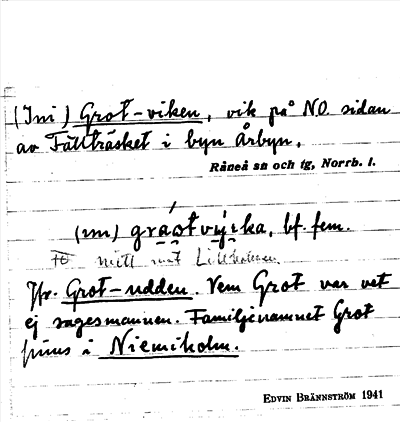 (Ini) Grot-viken, vik på NO. sidan
av Fällträsket i byn Årbyn.
Råneå sn och tg, Norrb. l.
(ını) gråstvịka, bf. fem.
mitt mot Lillholmen.
Jfr. Grot-udden. Vem Grot var vet
ej sagesmannen. Familjenamnet Grot
finns i Niemisholm.
EDVIN BRÄNNSTRÖM 1941